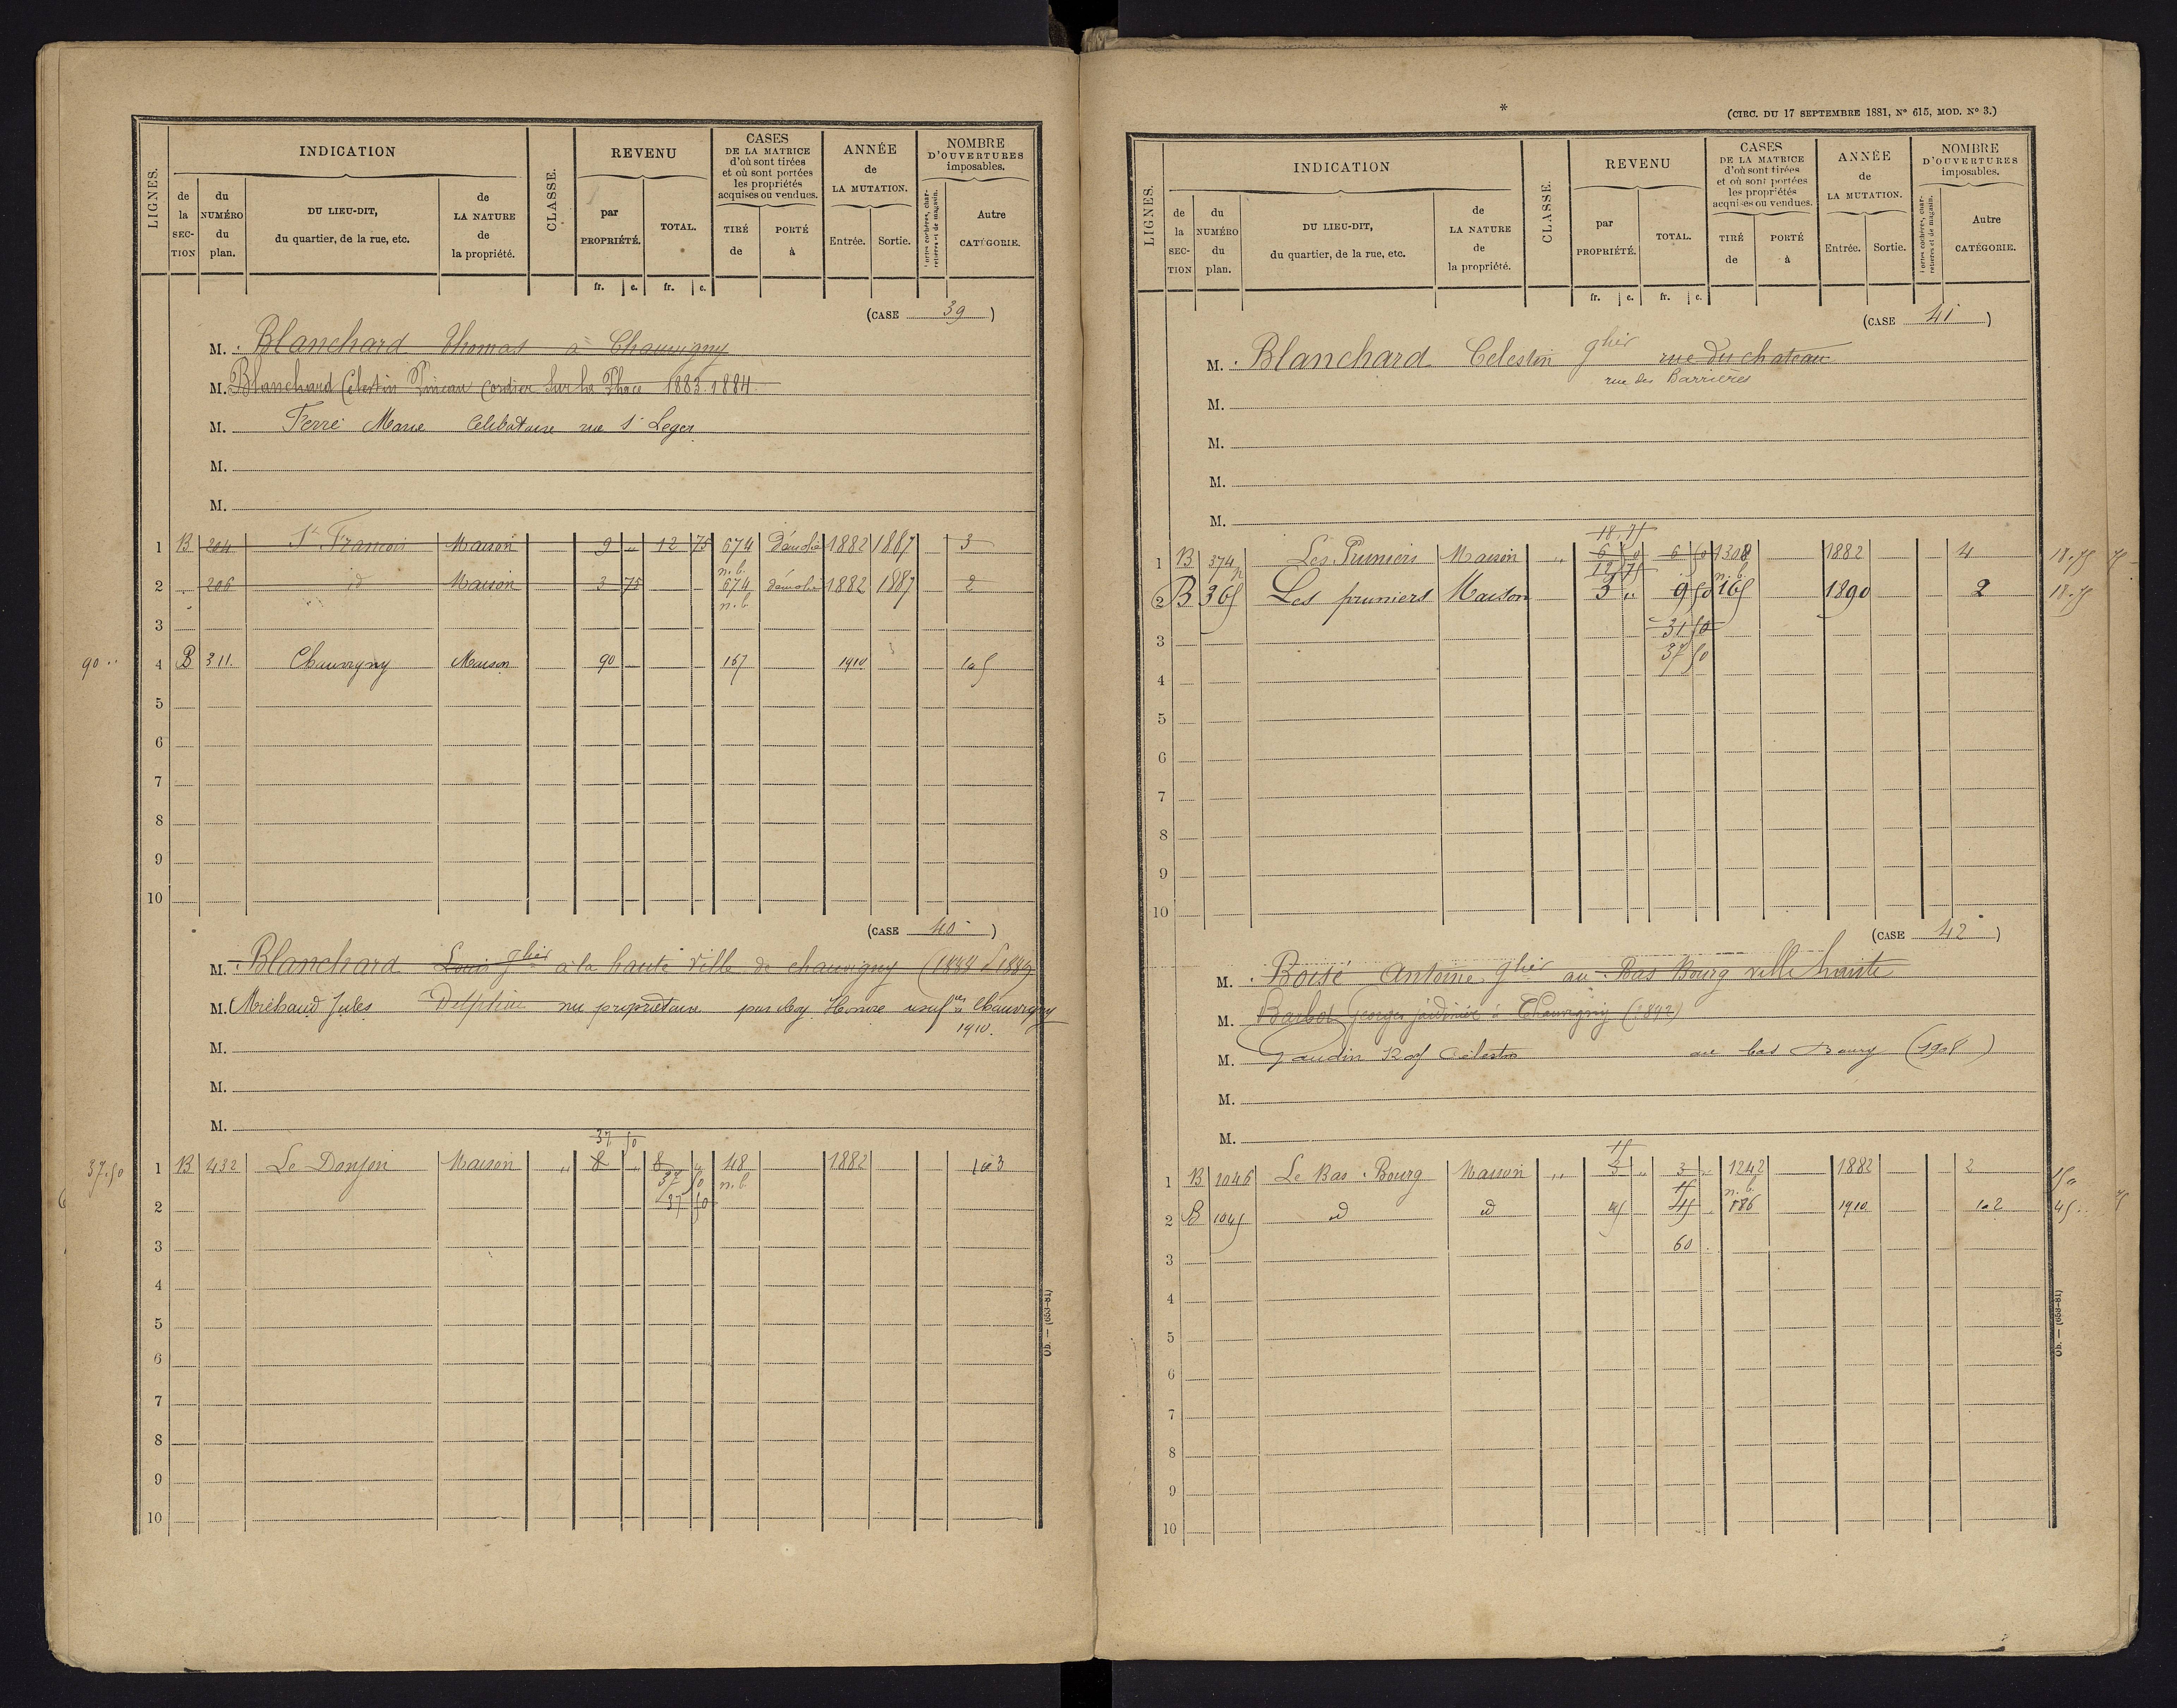 LIGNES.
INDICATION
de la SECTION
du NUMÉRO du plan.
DU LIEU-DIT, du quartier, de la rue, etc.
de LA NATURE de la propriété.
CLASSE.
REVENU
par PROPRIÉTÉ.
TOTAL.
CASES DE LA MATRICE d'où sont tirées et où sont portées les propriétés acquises ou vendues.
TIRÉ de
PORTÉ à
ANNÉE de LA MUTATION.
Entrée.
Sortie.
NOMBRE D'OUVERTURES imposables.
Portes cochères, charretières et de magasin.
Autre CATÉGORIE.
fr. c. fr. c.
(CASE 39)
M. Blanchard Thomas à Chauvigny
M. Blanchard Célestin Cordier Sur la Place 1883.1884
M. Ferré Marie Célibataire rue St Leger
M.
M.
1 B 204 St François Maison 9 " 12 75 674 n.b. démolie 1882 1887 3
2 . 206 id Maison 3 75 674 n.b. démolie 1882 1887 2
3
90 .. 4 B 311. Chauvigny Maison 90 167 1910 1 à 5
5
6
7
8
9
10
(CASE 40)
M. Blanchard Louis à la haute Ville de chauvigny
M. Jules Delphine nu propriétaire par Honoré usuf Chauvigny
1910.
M.
M.
M.
37 50
37.50 1 B 432 Le Donjon Maison " 8 " 8 " 48 n.b. 1882 1 à 3
37 50
2 37 50
3
4
5
6
7
8
9
10
Ob. — (653-81)
*
(CIRC. DU 17 SEPTEMBRE 1881, N° 615, MOD. N° 3.)
LIGNES.
INDICATION
de la SECTION
du NUMÉRO du plan.
DU LIEU-DIT, du quartier, de la rue, etc.
de LA NATURE de la propriété.
CLASSE.
REVENU
par PROPRIÉTÉ.
TOTAL.
CASES DE LA MATRICE d'où sont tirées et où sont portées les propriétés acquises ou vendues.
TIRÉ de
PORTÉ à
ANNÉE de LA MUTATION.
Entrée.
Sortie.
NOMBRE D'OUVERTURES imposables.
Portes cochères, charretières et de magasin.
Autre CATÉGORIE.
fr. c. fr. c.
(CASE 41)
M. Blanchard Celestin rue du chateau
rue des Barrières
M.
M.
M.
M.
18.75
1 B 374 p Les Pruniers Maison " 6 50 6 50 1308 n.b. 1882 4 18.75
12 75
2 B 365 Les pruniers Maison 3 " 9 50 165 1890 2 18.75
3 31 50
37 50
4
5
6
7
8
9
10
(CASE 42)
M. Boisé Antoine au Bas Bourg ville haute
M. Barbot Georges jardinier à Chauvigny
M. Gaudin Célestin au bas Bourg (1908)
M.
M.
15
1 B 1046 Le Bas Bourg Maison " 3 " 3 " 1242 n.b. 1882 2 15 "
15
2 B 1045 id id 45 45 186 1910 1 à 2 45 ..
3 60
4
5
6
7
8
9
10
Ob. — (653-81)